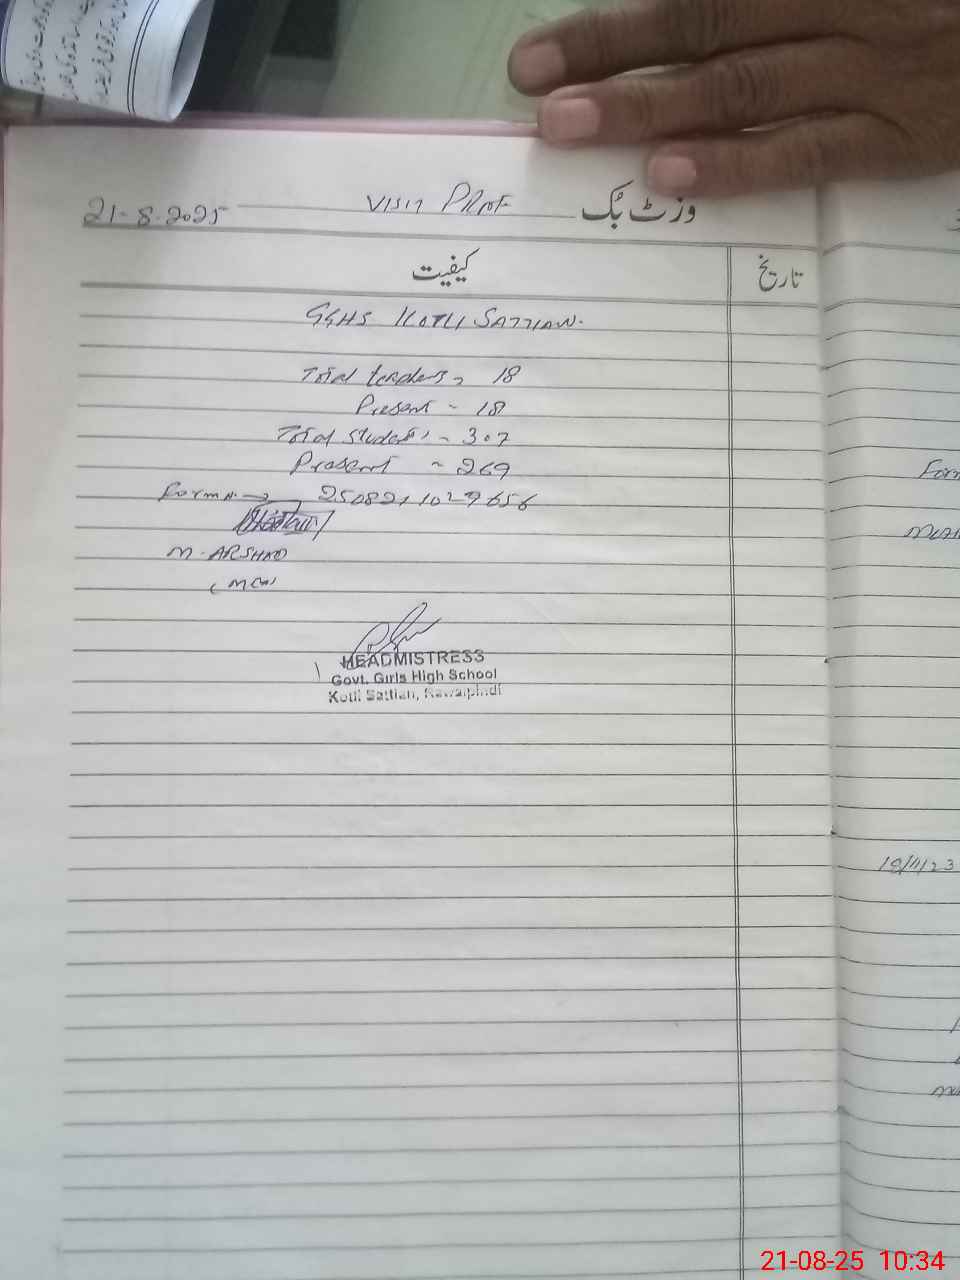 21-8-2025 VISIT PROF وزٹ بُک
کیفیت تاریخ
GGHS KOTLI SATTIAN.
Total teachers - 18
Present - 18
Total students - 307
Present - 269
Form N → 2508211029656
M. ARSHAD
(MEA)
HEADMISTRESS
Govt. Girls High School
Kotli Sattian, Rawalpindi
Form
18/11/23
21-08-25 10:34